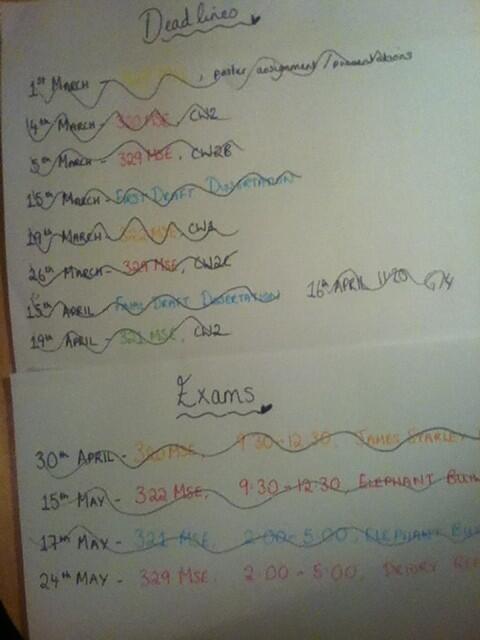 Deadlines
1st March - , poster assignment / presentations
14th March - 320 MSE, CW2
5th March - 329 MSE, CW2B
15th March - First Draft Dissertation
19th March - 322 MSE, CW1
26th March - 329 MSE, CW2C
15th April - Final Draft Dissertation 16th April 11:20
19th April - 321 MSE, CW2
Exams
30th April - 320 MSE, 9:30 - 12:30, James Starley
15th May - 322 MSE, 9:30 - 12:30, Elephant
17th May - 321 MSE, 2:00 - 5:00, Elephant
24th May - 329 MSE, 2:00 - 5:00, Priory